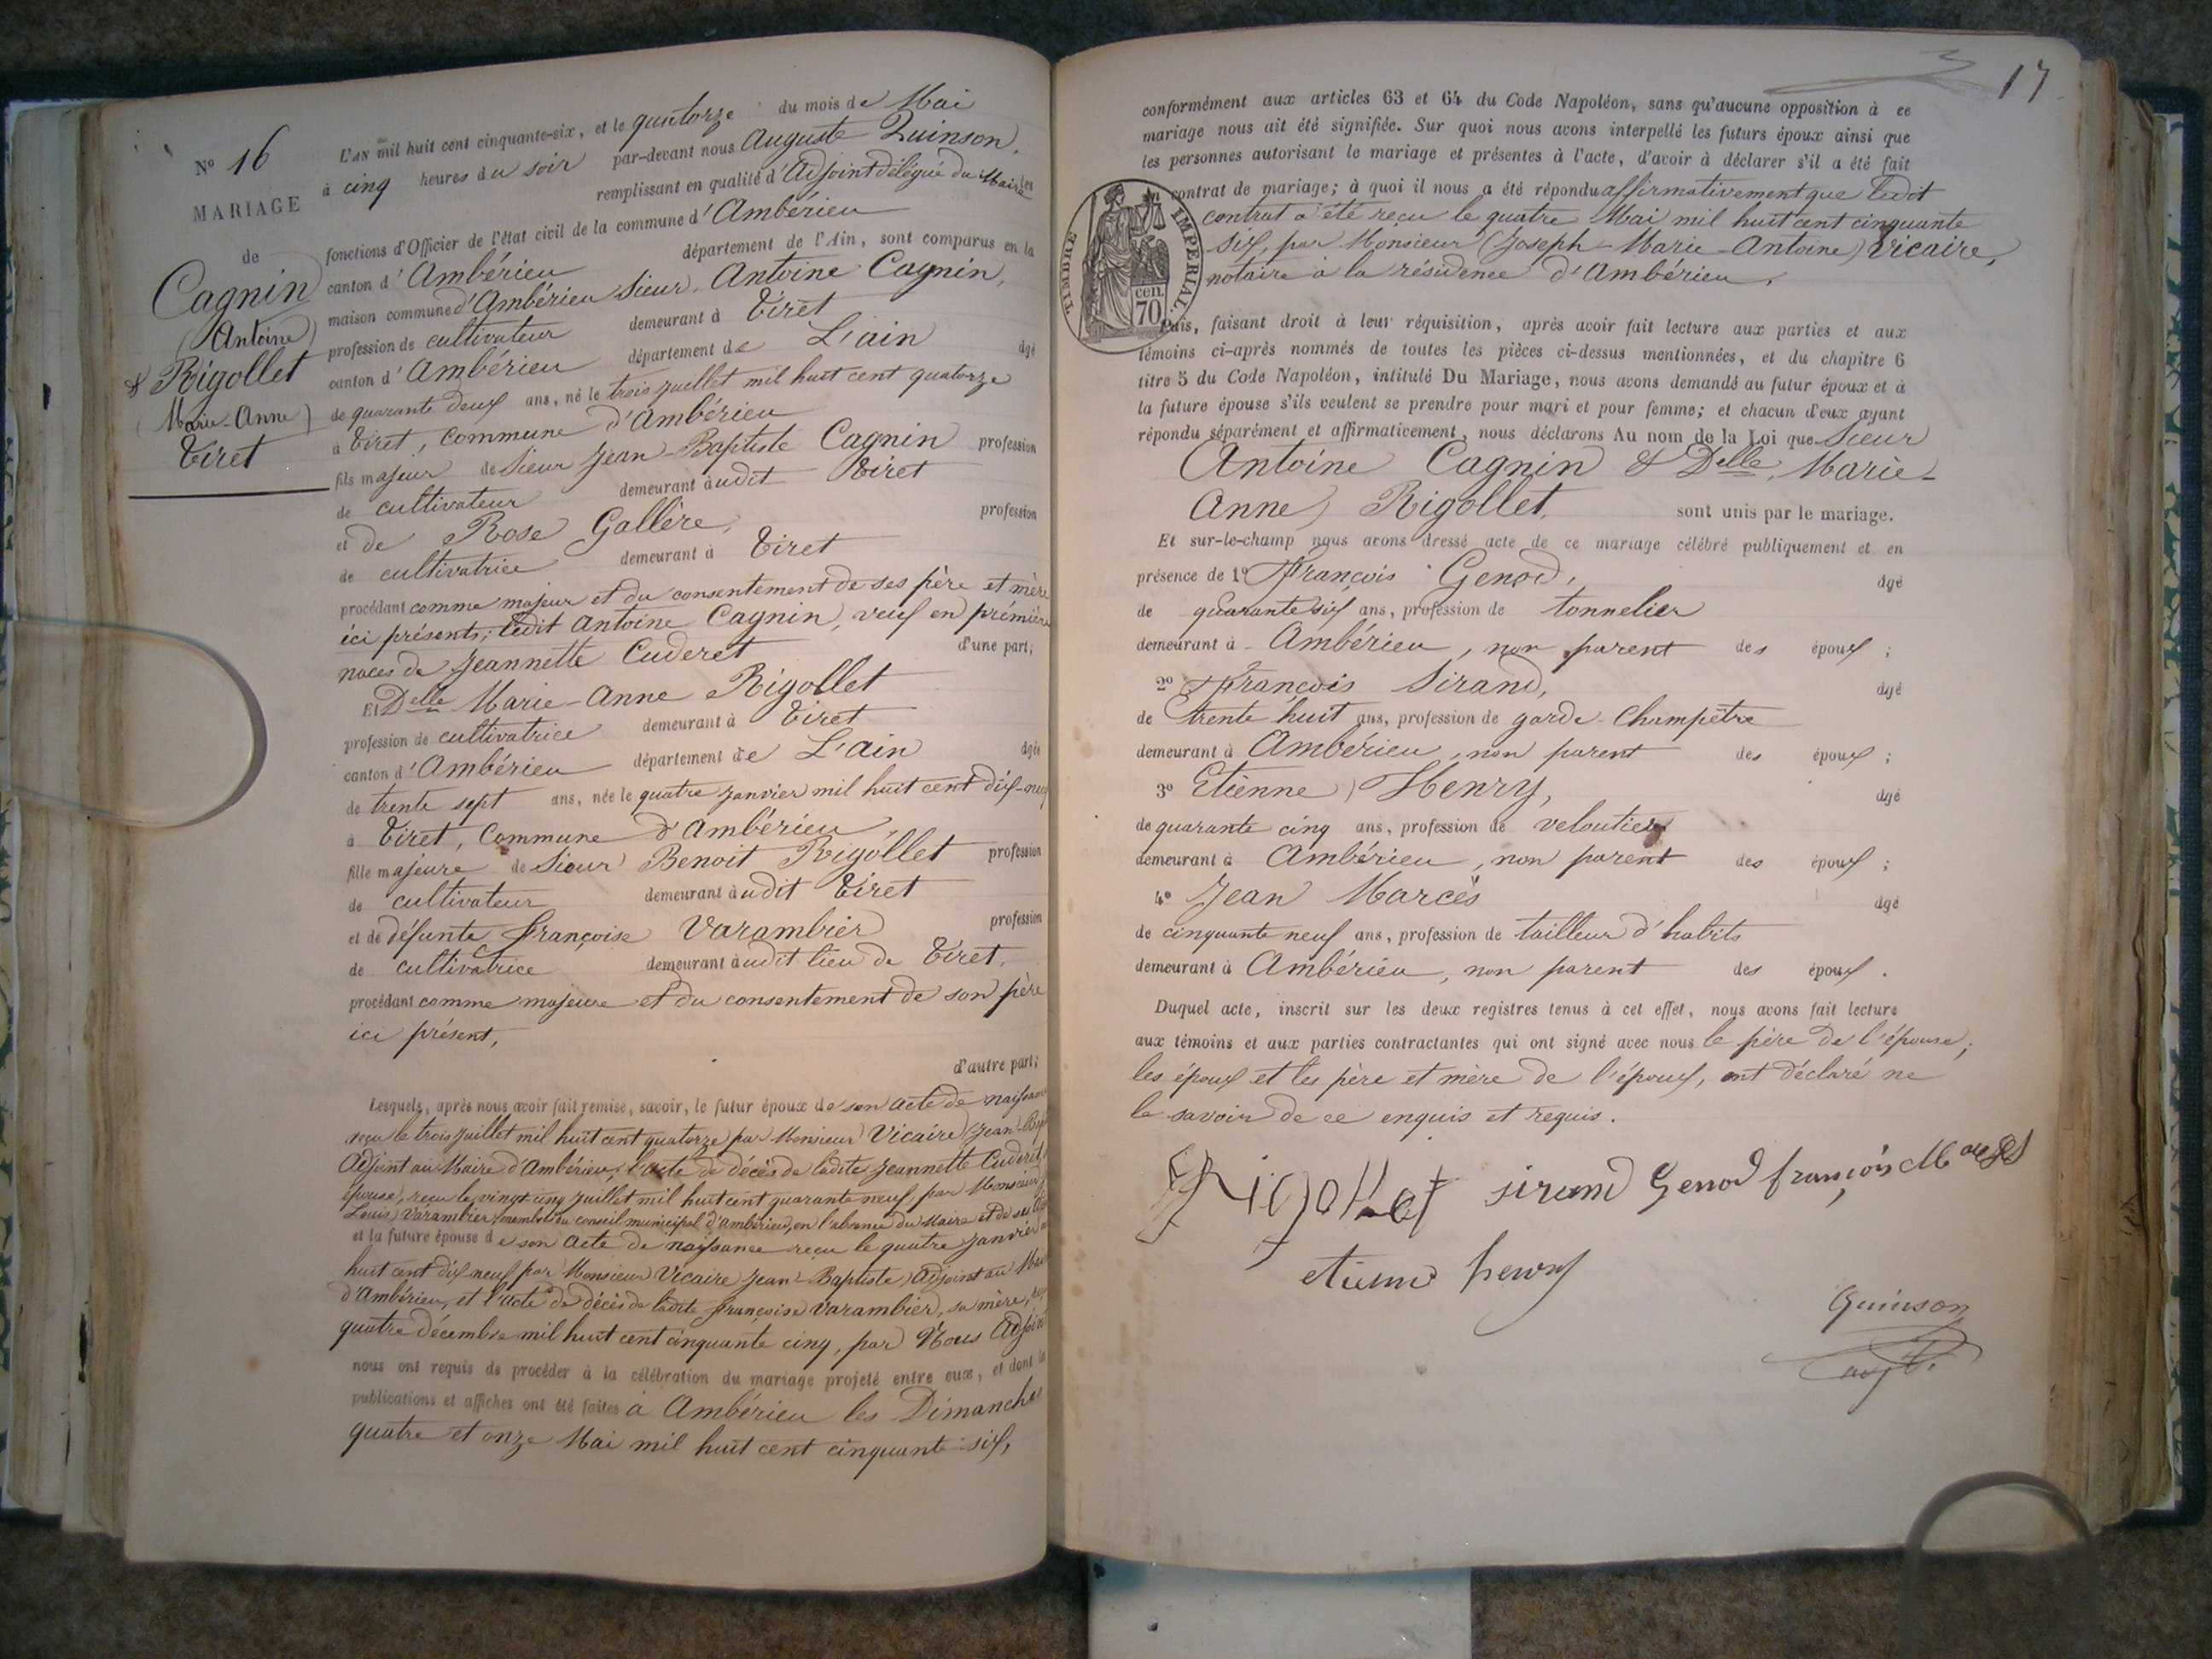 N° 16
MARIAGE
de
Cagnin
(Antoine)
& Rigollet
(Marie-Anne)
Tiret
L'AN mil huit cent cinquante-six, et le quatorze du mois de Mai
à cinq heures du soir par-devant nous Auguste Quinson,
remplissant en qualité d'Adjoint délégué du Maire les
fonctions d'Officier de l'état civil de la commune d'Ambérieu
canton d'Ambérieu département de l'Ain, sont comparus en la
maison commune d'Ambérieu Sieur Antoine Cagnin,
profession de cultivateur demeurant à Tiret
canton d'Ambérieu département de L'ain âgé
de quarante deux ans, né le trois juillet mil huit cent quatorze
à Tiret, commune d'Ambérieu
fils majeur de Sieur Jean-Baptiste Cagnin profession
de cultivateur demeurant audit Tiret
et de Rose Gallère, profession
de cultivatrice demeurant à Tiret
procédant comme majeur et du consentement de ses père et mère
ici présents; ledit Antoine Cagnin, veuf en première
noces de Jeannette Cuderet d'une part;
Et Delle Marie-Anne Rigollet
profession de cultivatrice demeurant à Tiret
canton d'Ambérieu département de L'ain âgée
de trente sept ans, née le quatre janvier mil huit cent dix-neuf
à Tiret, commune d'Ambérieu,
fille majeure de Sieur Benoit Rigollet profession
de cultivateur demeurant audit Tiret
et de défunte Françoise Varambier profession
de cultivatrice demeurant audit lieu de Tiret,
procédant comme majeure et du consentement de son père
ici présent,
d'autre part;
Lesquels, après nous avoir fait remise, savoir, le futur époux de son acte de naissance
reçu le trois juillet mil huit cent quatorze par Monsieur Vicaire (Jean-Bap
Adjoint au Maire d'Ambérieu; l'acte de décès de ladite Jeannette Cuderet,
épouse, reçu le vingt cinq juillet mil huit cent quarante neuf, par Monsieur
Louis Varambier, membre du conseil municipal d'Ambérieu, en l'absence du Maire et de ses
et la future épouse de son acte de naissance reçu le quatre janvier
huit cent dix neuf par Monsieur Vicaire Jean-Baptiste, adjoint au
d'Ambérieu, et l'acte de décès de ladite Françoise Varambier, sa mère,
quatre décembre mil huit cent cinquante cinq, par Nous Adjoint
nous ont requis de procéder à la célébration du mariage projeté entre eux, et dont
publications et affiches ont été faites à Ambérieu les Dimanches
quatre et onze Mai mil huit cent cinquante-six,
17
conformément aux articles 63 et 64 du Code Napoléon, sans qu'aucune opposition à ce
mariage nous ait été signifiée. Sur quoi nous avons interpellé les futurs époux ainsi que
les personnes autorisant le mariage et présentes à l'acte, d'avoir à déclarer s'il a été fait
un contrat de mariage; à quoi il nous a été répondu affirmativement que ledit
contrat a été reçu le quatre Mai mil huit cent cinquante
six, par Monsieur (Joseph-Marie-Antoine) Vicaire,
notaire à la résidence d'Ambérieu.
TIMBRE IMPÉRIAL
70
cen.
Puis, faisant droit à leur réquisition, après avoir fait lecture aux parties et aux
témoins ci-après nommés de toutes les pièces ci-dessus mentionnées, et du chapitre 6
titre 5 du Code Napoléon, intitulé Du Mariage, nous avons demandé au futur époux et à
la future épouse s'ils veulent se prendre pour mari et pour femme; et chacun d'eux ayant
répondu séparément et affirmativement, nous déclarons Au nom de la Loi que Sieur
Antoine Cagnin & Delle, Marie-
Anne Rigollet, sont unis par le mariage.
Et sur-le-champ nous avons dressé acte de ce mariage célébré publiquement et en
présence de 1° François Genod, âgé
de quarante six ans, profession de tonnelier
demeurant à Ambérieu, non parent des époux;
2° François Sirand, âgé
de trente huit ans, profession de garde-Champêtre
demeurant à Ambérieu, non parent des époux;
3° Etienne Henry, âgé
de quarante cinq ans, profession de veloutier
demeurant à Ambérieu, non parent des époux;
4° Jean Marcès âgé
de cinquante neuf ans, profession de tailleur d'habits
demeurant à Ambérieu, non parent des époux.
Duquel acte, inscrit sur les deux registres tenus à cet effet, nous avons fait lecture
aux témoins et aux parties contractantes qui ont signé avec nous le père de l'épouse;
les époux et les père et mère de l'époux, ont déclaré ne
le savoir de ce enquis et requis.
Rigollet sirand Genod françois
etienne henry
Quinson
adjt.